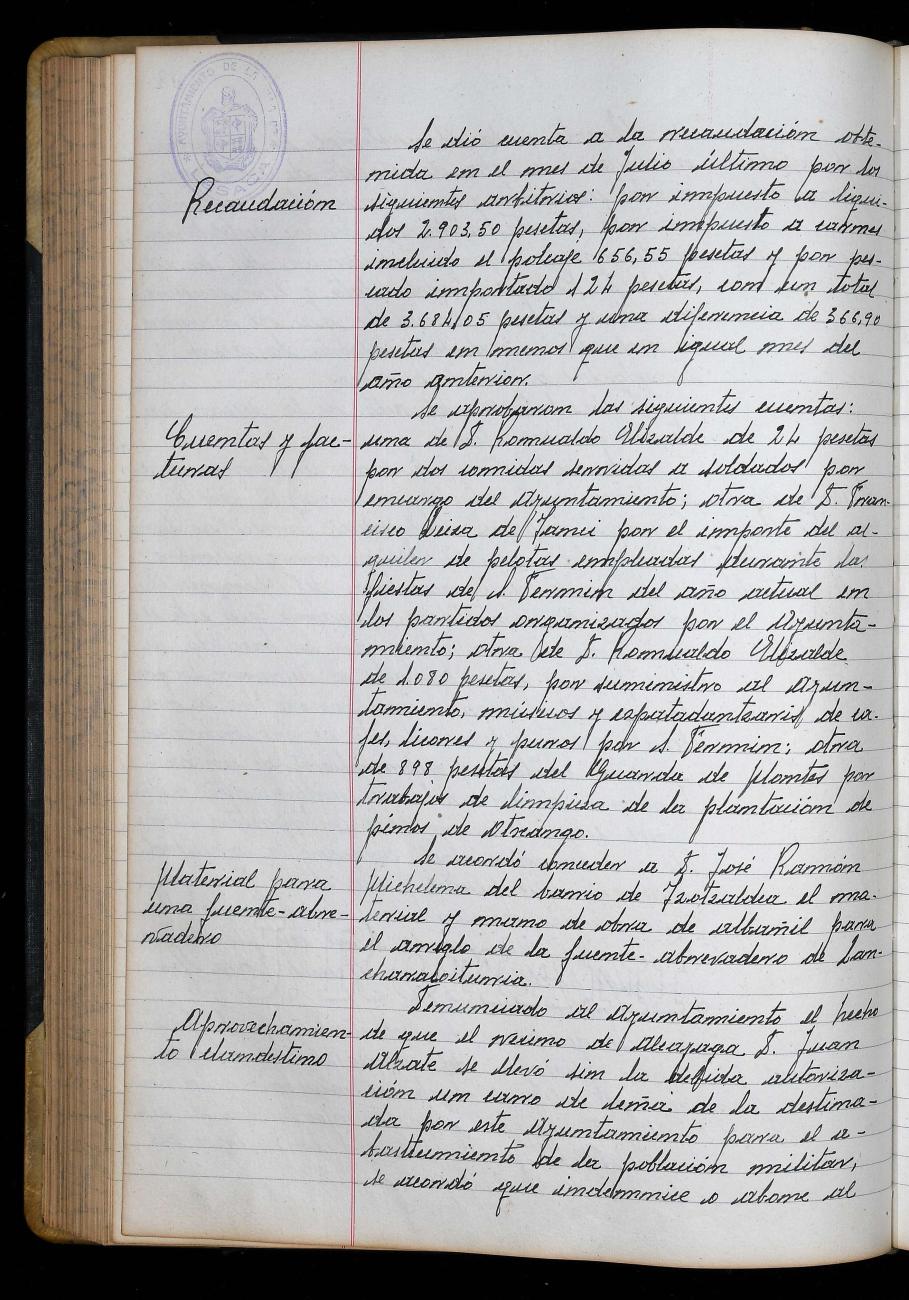 AYUNTAMIENTO DE LA
Se dió cuenta a la recaudación obte-
nida en el mes de Julio último por los
Recaudación
siguientes arbitrios: por impuesto a líqui-
dos 2.903,50 pesetas, por impuesto a carnes
incluido el poleaje 656,55 pesetas y por pes-
cado importado 124 pesetas, con un total
de 3.684,05 pesetas y una diferencia de 366,90
pesetas en menos que en igual mes del
año anterior.
Se aprobaron las siguientes cuentas:
Cuentas y fac-
turas
una de D. Romualdo Elizalde de 24 pesetas
por dos comidas servidas a soldados por
encargo del Ayuntamiento; otra de D. Fran-
cisco Leiza de Janci por el importe del al-
quiler de pelotas empleadas durante las
fiestas de S. Fermin del año actual en
los partidos organizados por el Ayunta-
miento; otra de D. Romualdo Elizalde
de 1.080 pesetas, por suministro al Ayun-
tamiento, músicos y espatadantzaris de ca-
fes, licores y puros por S. Fermin; otra
de 898 pesetas del Guarda de Montes por
trabajos de limpieza de la plantación de
pinos de Otsango.
Se acordó conceder a D. José Ramón
Material para
una fuente-abre-
vadero
Michelena del barrio de Izotzaldea el ma-
terial y mano de obra de albañil para
el arreglo de la fuente-abrevadero de Lan-
charaloiturria.
Denunciado al Ayuntamiento el hecho
Aprovechamien-
to clandestino
de que el vecino de Alcayaga D. Juan
Alzate se llevó sin la debida autoriza-
ción un carro de leña de la destina-
da por este Ayuntamiento para el a-
bastecimiento de la población militar,
se acordó que indemnice o abone al